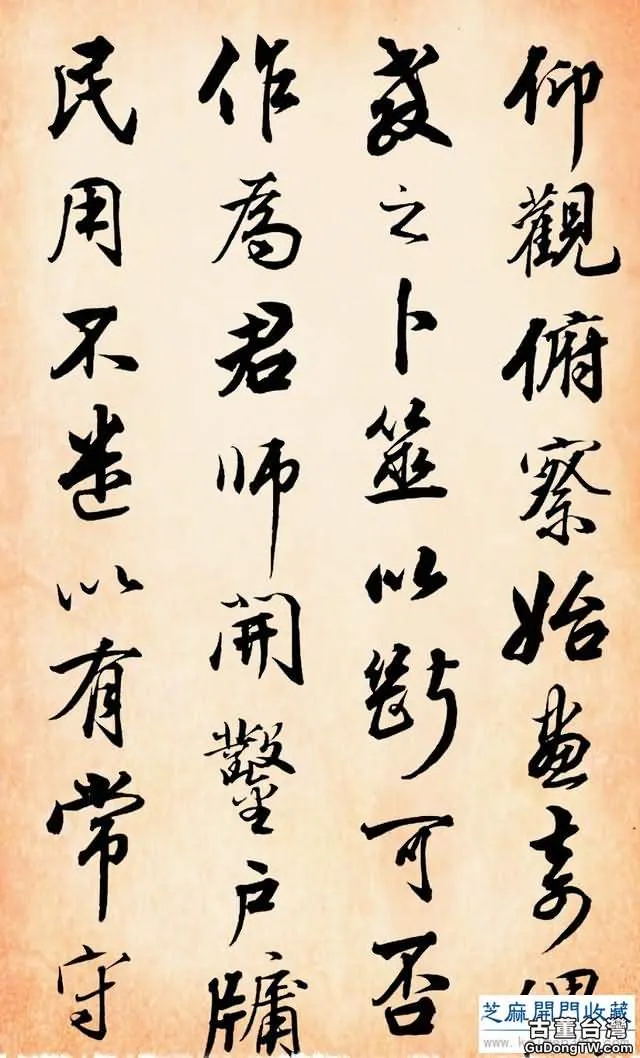 仰觀俯察始畫奇偶
教之卜筮以斷可否
作為君師開鑿戶牖
民用不迷以有常守
芝麻開門收藏
古董台灣
GuDongTW.com